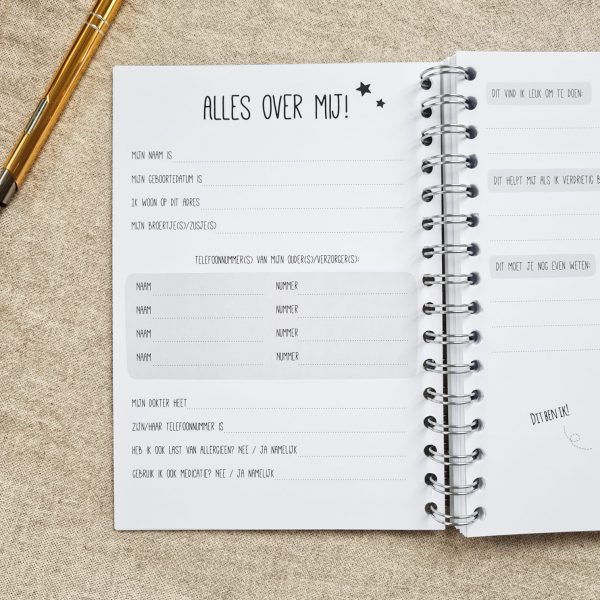 ALLES OVER MIJ!
MIJN NAAM IS
MIJN GEBOORTEDATUM IS
IK WOON OP DIT ADRES
MIJN BROERTJE(S)/ZUSJE(S)
TELEFOONNUMMER(S) VAN MIJN OUDER(S)/VERZORGER(S):
NAAM NUMMER
NAAM NUMMER
NAAM NUMMER
NAAM NUMMER
MIJN DOKTER HEET
ZIJN/HAAR TELEFOONNUMMER IS
HEB IK OOK LAST VAN ALLERGIEEN? NEE / JA NAMELIJK
GEBRUIK IK OOK MEDICATIE? NEE / JA NAMELIJK
DIT VIND IK LEUK OM TE DOEN:
DIT HELPT MIJ ALS IK VERDRIETIG B
DIT MOET JE NOG EVEN WETEN:
DIT BEN IK!